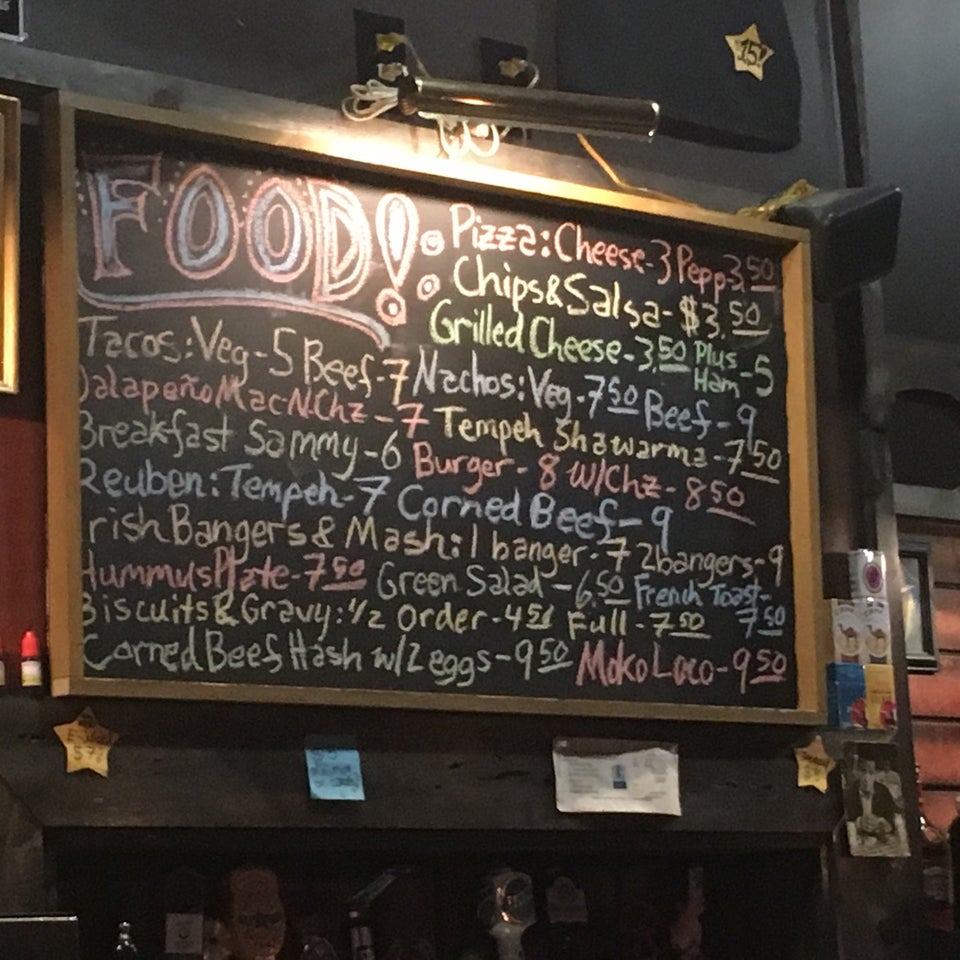 FOOD!
Pizza: Cheese-3 Pepp 3.50
Chips & Salsa-$3.50
Grilled Cheese-3.50 Plus Ham-5
Tacos: Veg-5 Beef-7 Nachos: Veg-7 50 Beef-9
Jalapeño Mac N Chz-7 Tempeh Shawarma-7 50
Breakfast Sammy-6 Burger-8 W/Chz-8 50
Reuben: Tempeh-7 Corned Beef-9
Irish Bangers & Mash: 1 banger-7 2 bangers-9
Hummus Plate-7 50 Green Salad-6.50 French Toast-7 50
Biscuits & Gravy: 1/2 Order-4 50 Full-7 50
Corned Beef Hash w/2 eggs-9 50 Moko Loco-9 50